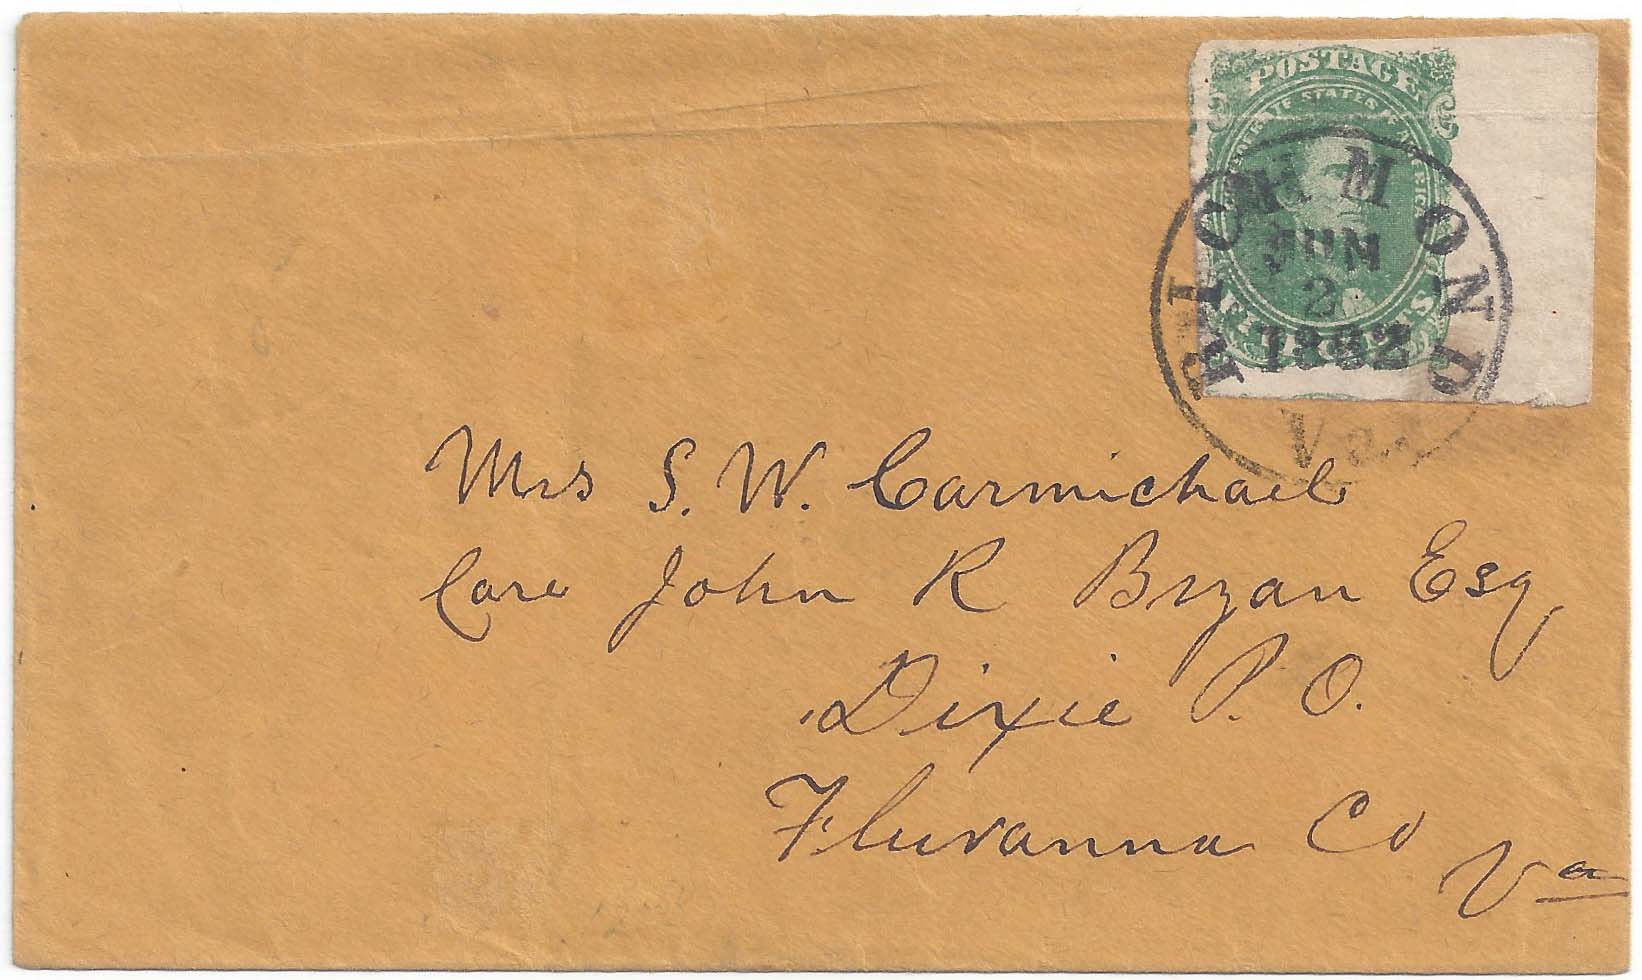 POSTAGE
STATES
RICHMOND
JUN
2
1862
Va.
Mrs S. W. Carmichael
Care John R Bryan Esq
Dixie P. O.
Fluvanna Co
Va